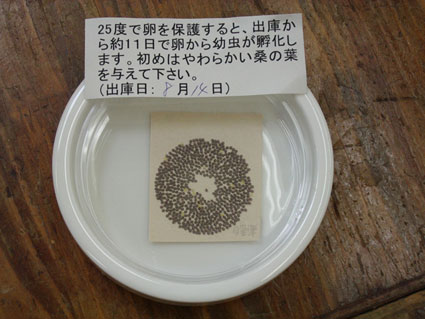 25度で卵を保護すると、出庫か
ら約11日で卵から幼虫が孵化し
ます。初めはやわらかい桑の葉
を与えて下さい。
(出庫日: 8月14日)